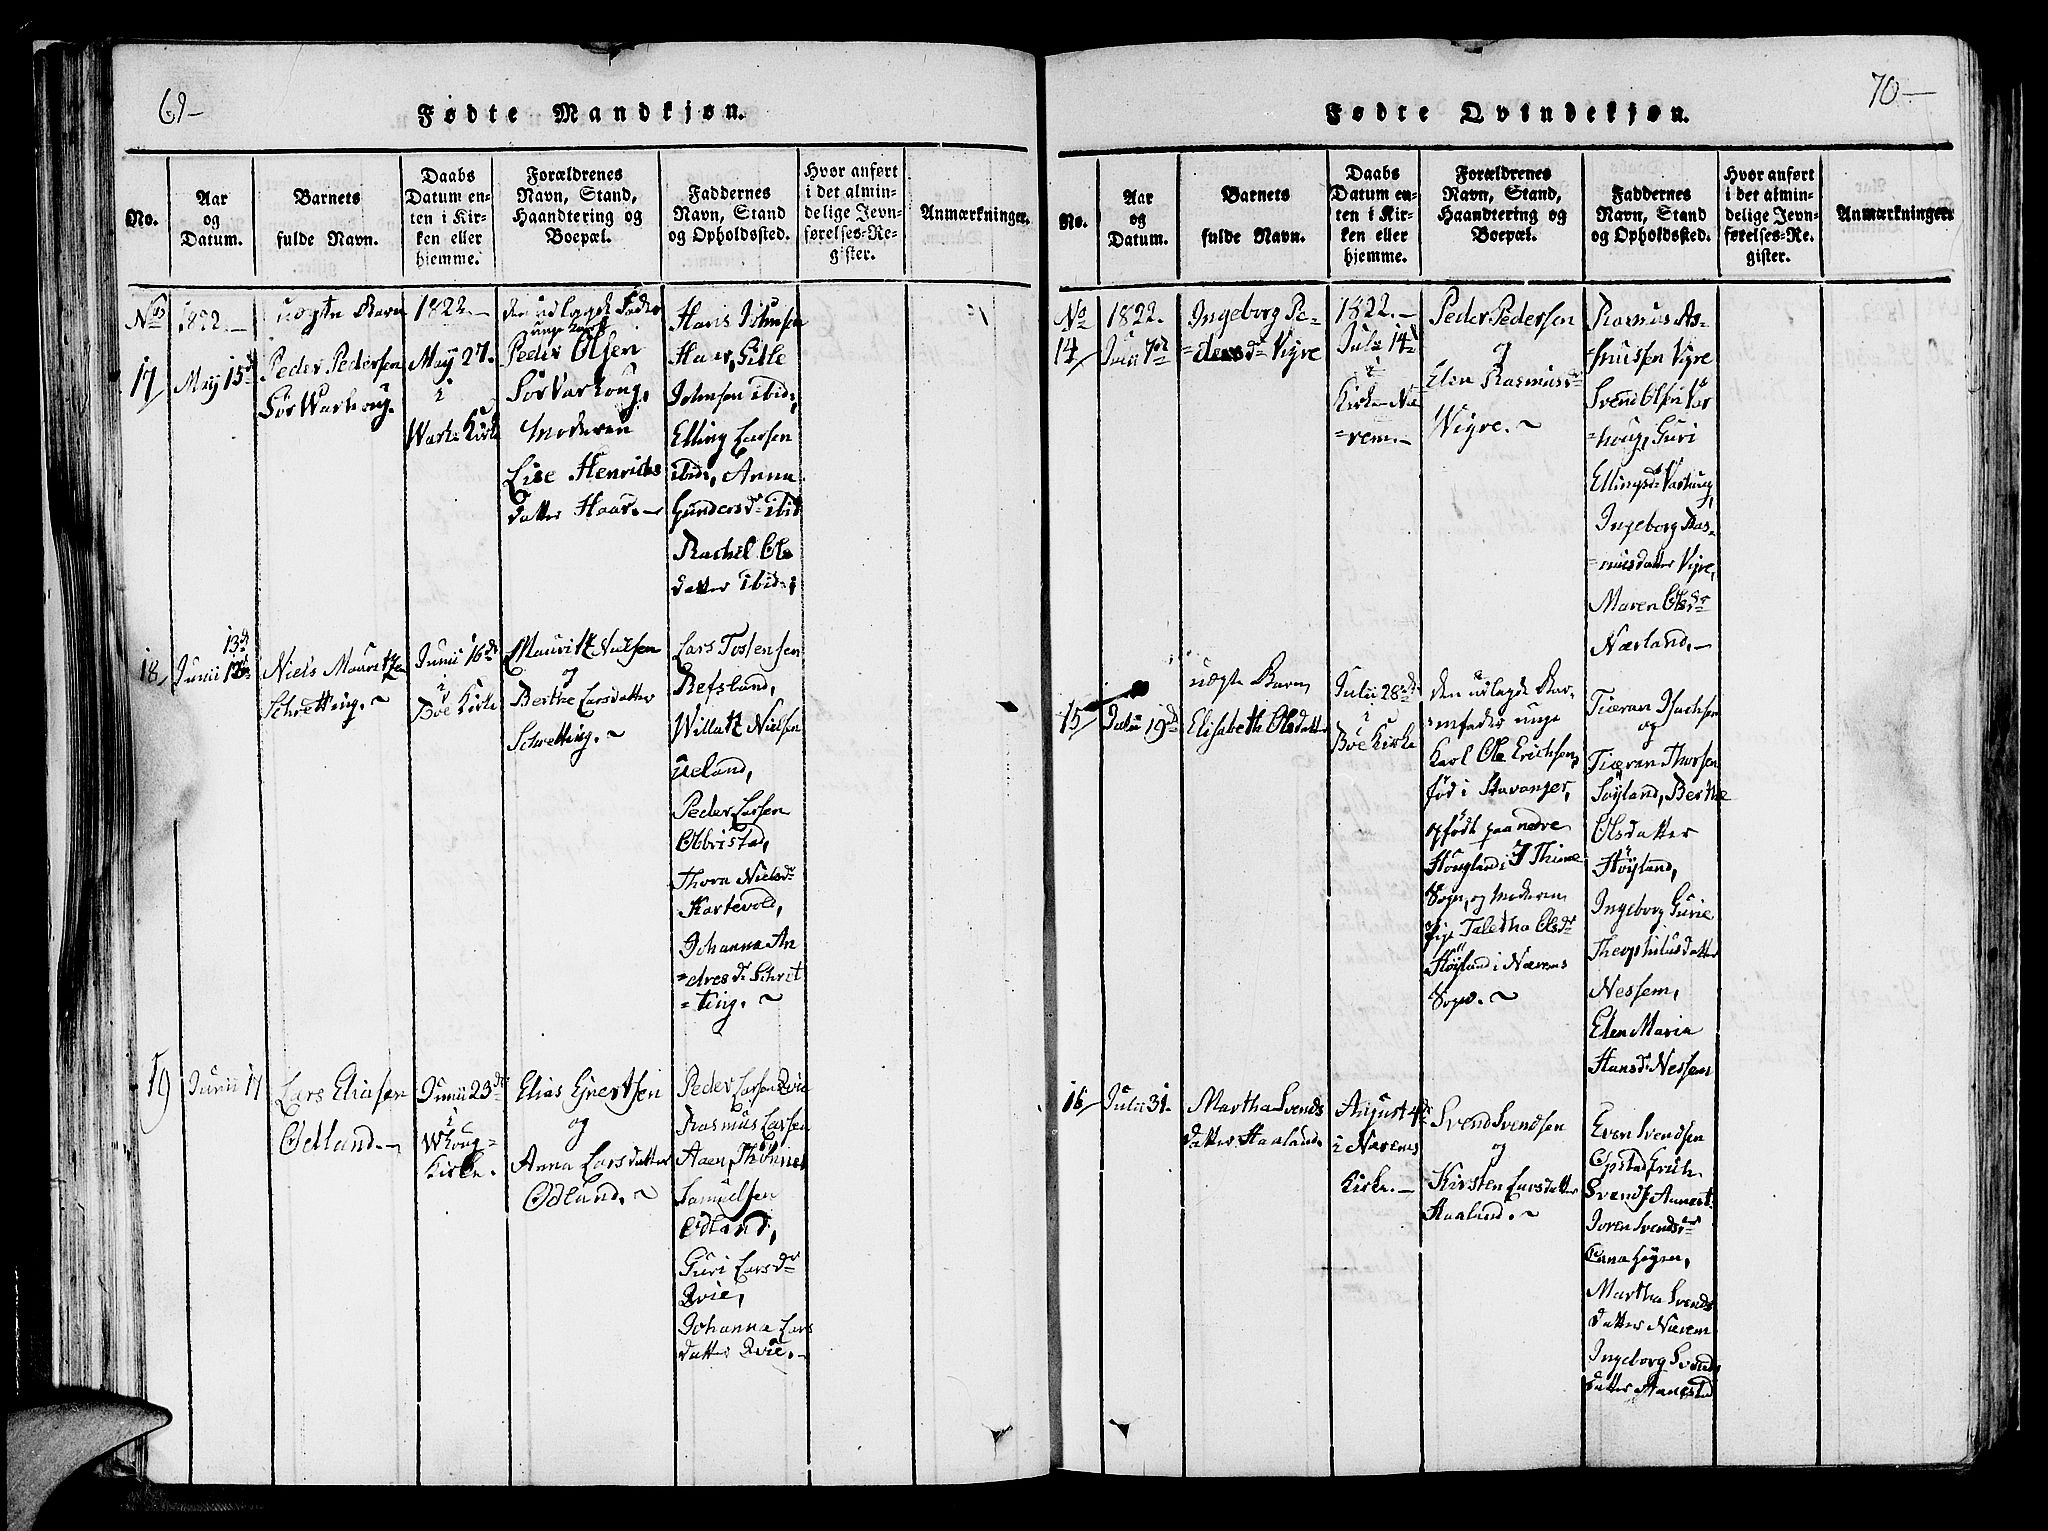 69-
Fødte Mandkjøn.
No.
Aar
og
Datum.
Barnets
fulde Navn.
Daabs
Datum en-
ten i Kir-
ken eller
hjemme.
Forældrenes
Navn, Stand,
Haandtering og
Boepæl.
Faddernes
Navn, Stand
og Opholdssted.
Hvor anført
i det almin-
delige Jevn-
førelses-Re-
gister.
Anmærkninger.
No
17
1822.-
May 15d
uægte Barn
Peder Pedersen
Sör Warhoug.
1822.-
May 27.
i
Warh: Kirke
den udlagde Fader
unge Karl
Peder Olsen
Sör Varhoug,
Moderen
Lise Henrichs
datter Haar.-
Hans Johnsen
Haar, Gitle
Johnsen ibid:,
Elling Larsen
ibid:, Anna
Gundersdr ibid
Rachel Ols
datter ibid:,
18
13d
Junii
Niels Mauritzen
Schretting.~
Junii 16d
i
Böe Kirke
Mauritz Nielsen
og
Berthe Larsdatter
Schretting.~
Lars Tostensen
Refsland,
Willatz Nielsen
Ueland,
Peder Larsen
Obbristad,
Thora Nielsdr
Hartevold,
Johanna An
=dresdr Schret
=ting.~
19
Junii 17
Lars Eliasen
Oedland.-
Junii 23d
i
Whoug=
Kirke.
Elias Gjertsen
og
Anna Larsdatter
Ödland.~
Peder Larsen Qvie
Rasmus Larsen
Aaen, Thönnes
Samuelsen
Ödland,
Guri Larsdr
Qvie,
Johanna Lars
datter Qvie.-
70-
Fødte Qvindekjøn.
No.
Aar
og
Datum.
Barnets
fulde Navn.
Daabs
Datum en-
ten i Kir-
ken eller
hjemme.
Forældrenes
Navn, Stand,
Haandtering og
Boepæl.
Faddernes
Navn, Stand
og Opholdssted.
Hvor anført
i det almin-
delige Jevn-
førelses-Re-
gister.
Anmærkninger.
No
14
1822.
Julii 7d
Ingeborg Pe-
=dersdr Vigre
1822.-
Julii 14d
i
Kirke Næ
=rem.-
Peder Pedersen
og
Elen Rasmusdr
Wigre.~
Rasmus As-
=husen Vigre
Svend Olsen Var
=houg, Guri
Ellingsdr Varhoug,
Ingeborg Ras-
=musdatter Vigre,
Maren Olsdr
Nærland.-
15
Julii 19d
uægte Barn
Elisabeth Olsdatter
Julii 28d
i
Böe Kirke
den udlagde Bar-
=nefader unge
Karl Ole Erichsen,
föd i Stavanger,
opfödt paa nedre
Hougland i Thime
Sogn, og Moderen
Pige Taletha Olsdr
Höyland i Nærems
Sogn.~
Tiøran Isachsen
og
Tiøran Thorsen
Söyland, Berthe
Olsdatter
Höyland,
Ingeborg Gurie
Theophilusdatter
Nessem,
Elen Maria
Hansdr Nessem
16
Julii 31.
Martha Svends
datter Haaland.
August 4d
i Nærems
Kirke.-
Svend Svendsen
og
Kirsten Larsdatter
Haaland.~
Even Svendsen
Opstad, Erich
Svends: Aanest
Joren Svendsdr
Martha Svends
datter Nærem
Ingeborg Svends
datter Aanestad